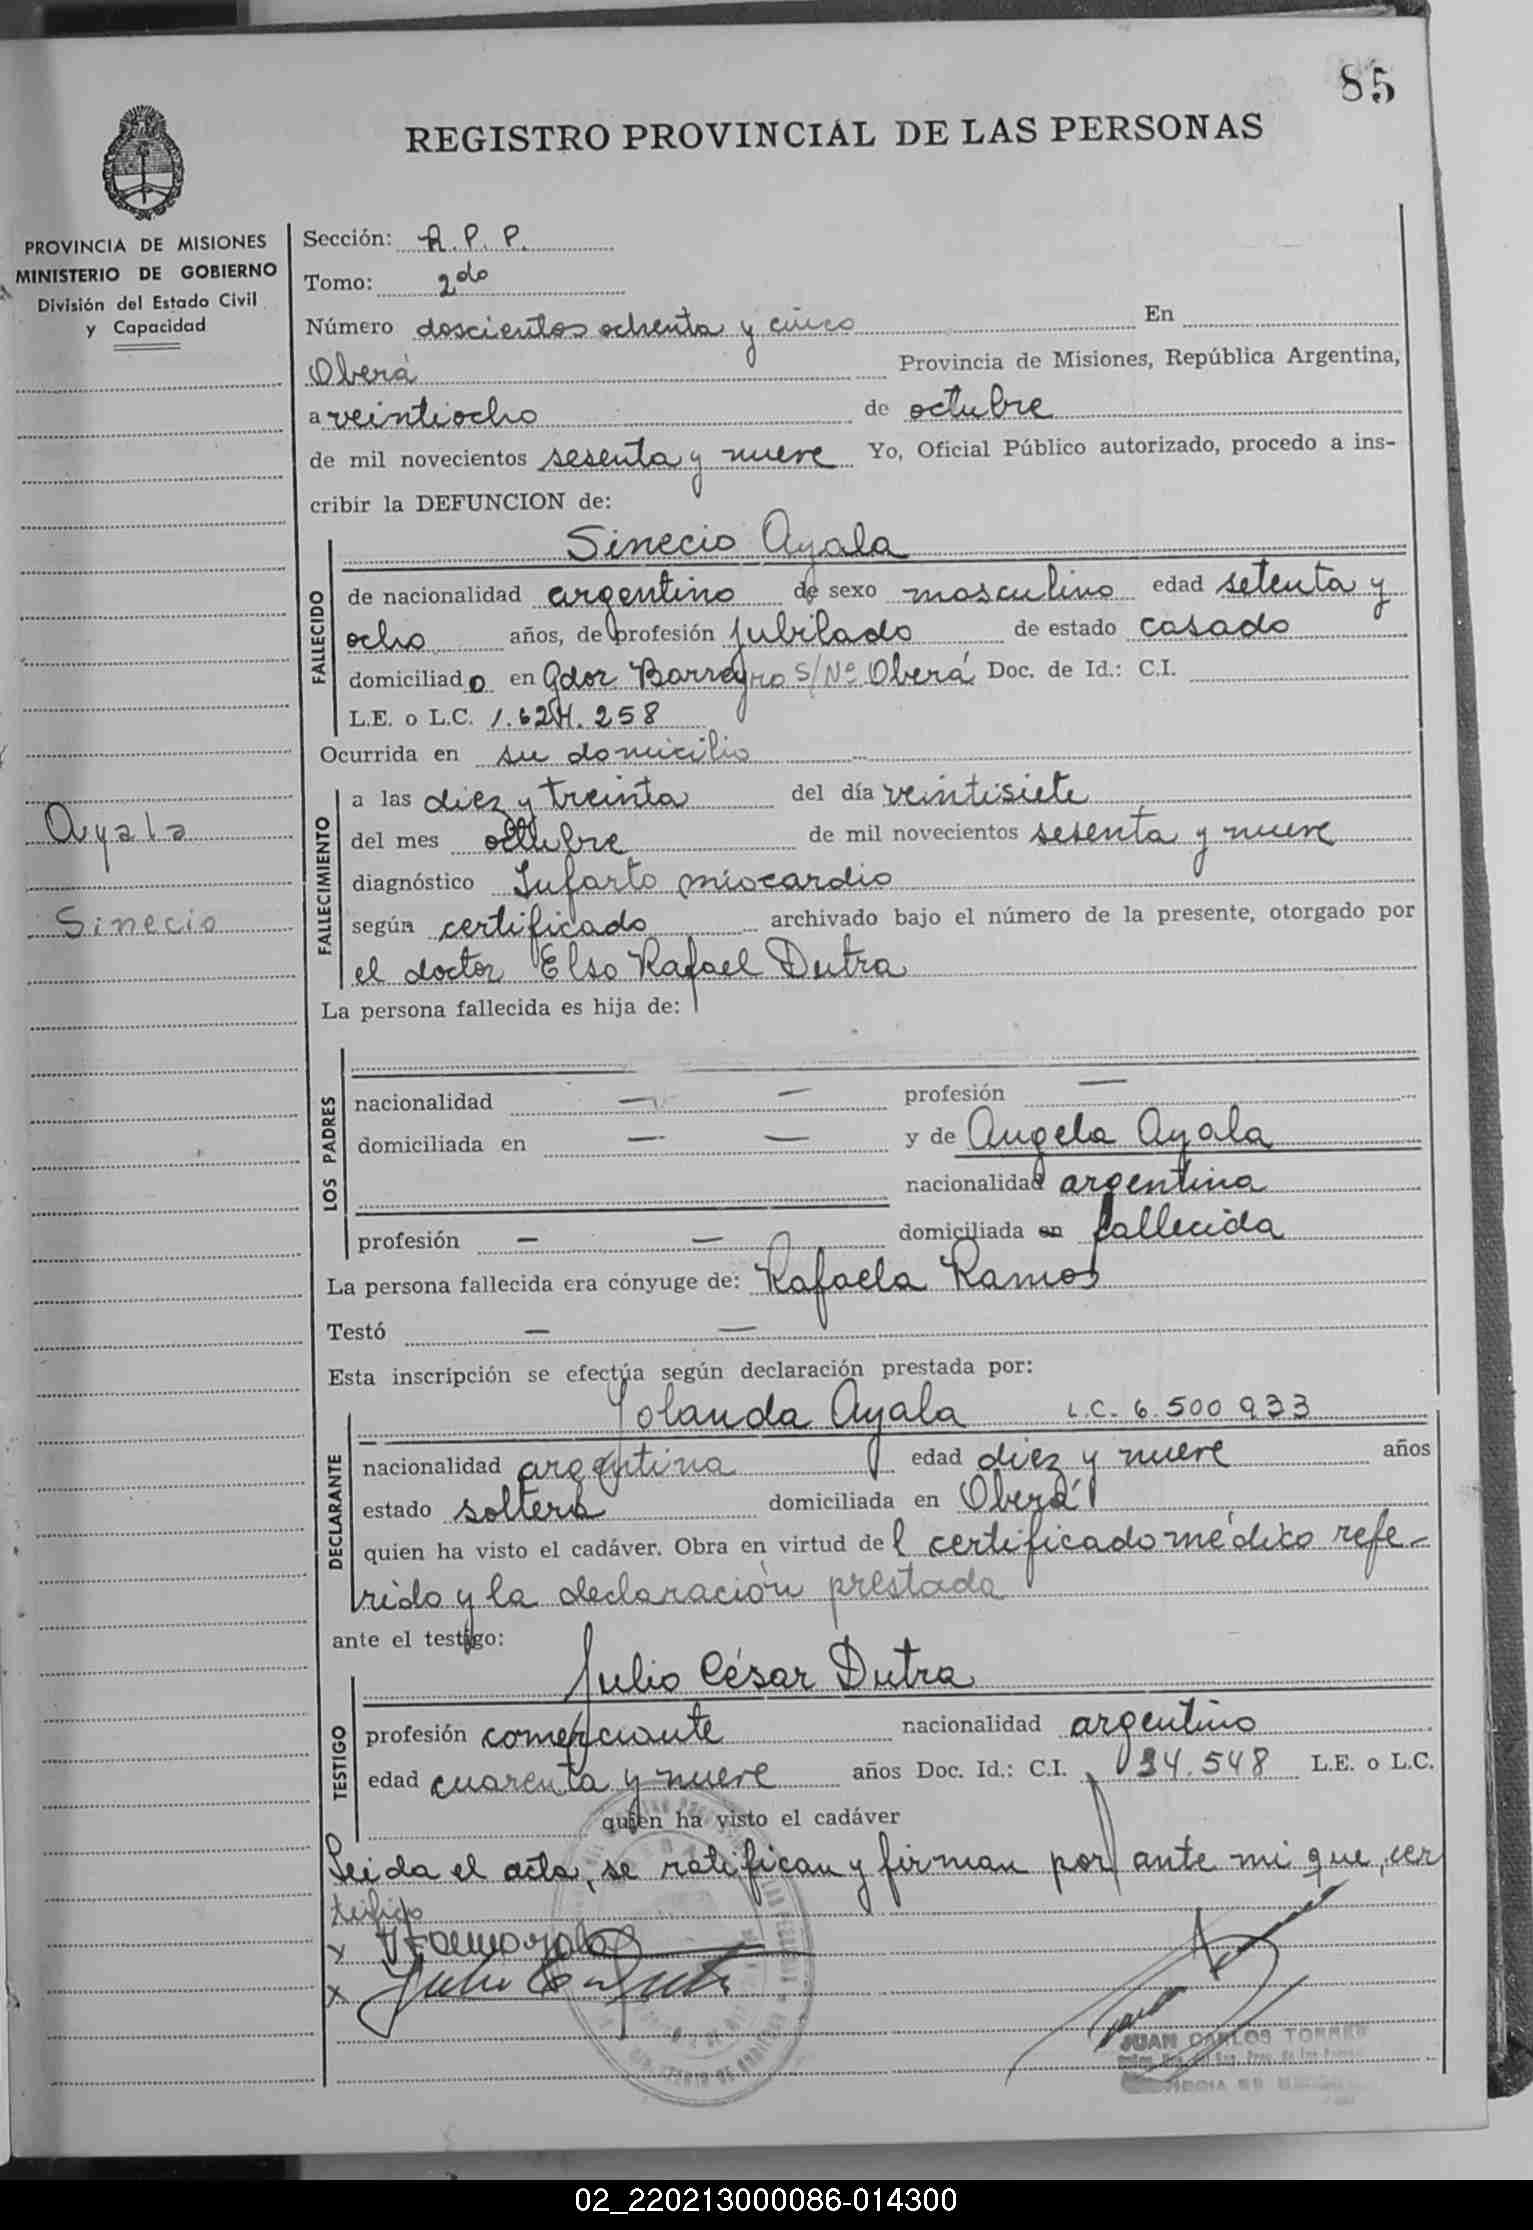 85
REGISTRO PROVINCIAL DE LAS PERSONAS
PROVINCIA DE MISIONES
MINISTERIO DE GOBIERNO
División del Estado Civil
y Capacidad
Ayala
Sinecio
Sección: A. P. P.
Tomo: 2do
Número doscientos ochenta y cinco En
Oberá Provincia de Misiones, República Argentina,
a veintiocho de octubre
de mil novecientos sesenta y nueve Yo, Oficial Público autorizado, procedo a ins-
cribir la DEFUNCION de:
FALLECIDO
Sinecio Ayala
de nacionalidad argentino de sexo masculino edad setenta y
ocho años, de profesión jubilado de estado casado
domiciliado en Gdor Barreyro S/Nº Oberá Doc. de Id.: C.I.
L.E. o L.C. 1.624.258
Ocurrida en su domicilio
FALLECIMIENTO
a las diez y treinta del día veintisiete
del mes octubre de mil novecientos sesenta y nueve
diagnóstico Infarto miocardio
según certificado archivado bajo el número de la presente, otorgado por
el doctor Elso Rafael Dutra
La persona fallecida es hija de:
LOS PADRES
nacionalidad — — profesión —
domiciliada en — — y de Angela Ayala
nacionalidad argentina
profesión — — domiciliada en fallecida
La persona fallecida era cónyuge de: Rafaela Ramos
Testó — —
Esta inscripción se efectúa según declaración prestada por:
DECLARANTE
Yolanda Ayala L.C. 6.500 933
nacionalidad argentina edad diez y nueve años
estado soltera domiciliada en Oberá
quien ha visto el cadáver. Obra en virtud del certificado médico refe-
rido y la declaración prestada
ante el testigo:
TESTIGO
Julio César Dutra
profesión comerciante nacionalidad argentino
edad cuarenta y nueve años Doc. Id.: C.I. 34.548 L.E. o L.C.
quien ha visto el cadáver
Leida el acta, se ratifican y firman por ante mi que, cer
tifico
x
x
JUAN CARLOS TORRES
02_220213000086-014300